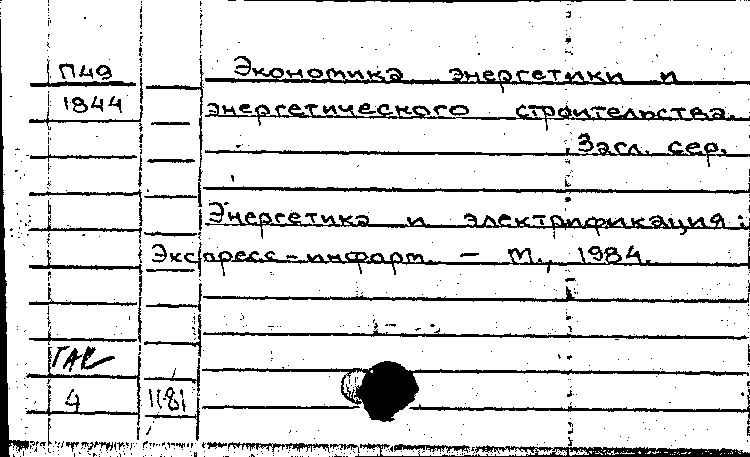 П49 Экономика энергетики и
1844 энергетического строительства.
Загл. сер.
Энергетика и электрификация:
Экспресс-информ. — М., 1984.
ГАР
4 1181